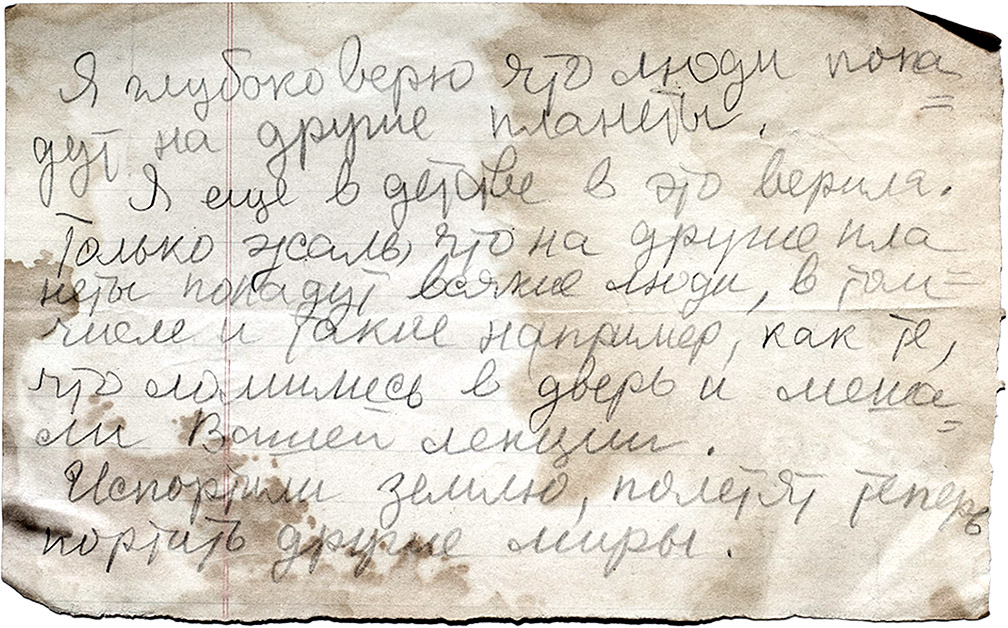 Я глубоко верю что люди попа=
дут на другие планеты.
Я еще в детстве в это верила.
Только жаль, что на другие пла
неты попадут всякие люди, в том=
числе и такие например, как те,
что ломились в дверь и меша=
ли Вашей лекции.
Испортили землю, полетят теперь
портить другие миры.